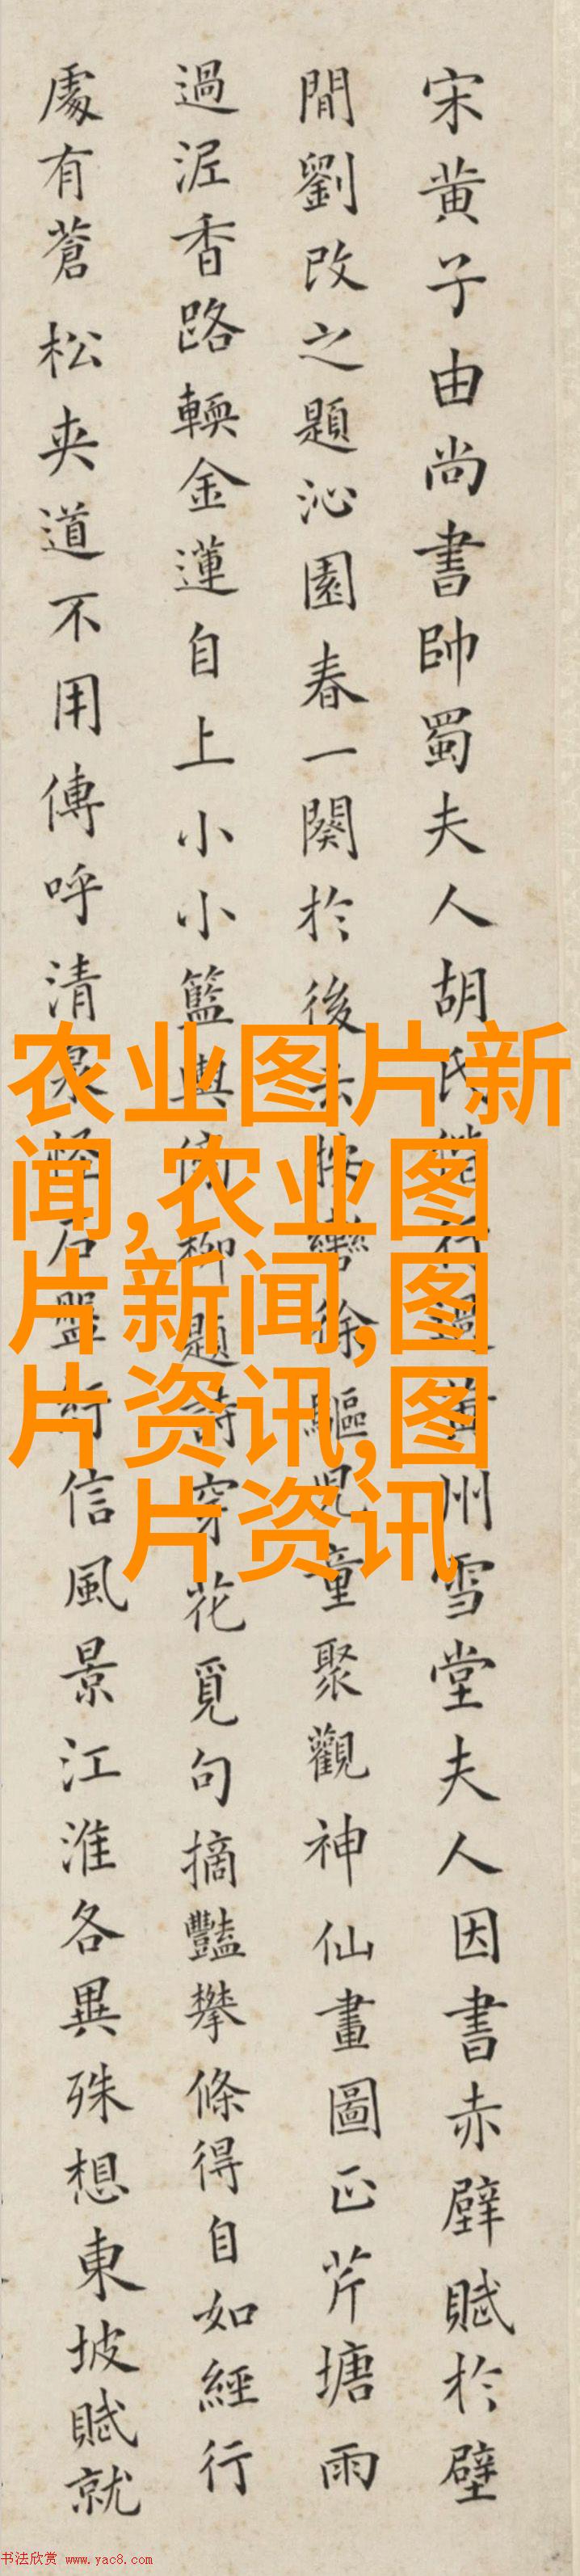 宋黄子由尚書帥蜀夫人胡氏偕行過黄州雪堂夫人因書赤壁賦於壁
間劉改之題沁園春一闋於後云按轡徐驅兒童聚觀神仙畫圖正芹塘雨
過泥香路輭金蓮自上小小籃輿傍柳題詩穿花覓句摘豔攀條得自如經行
處有蒼松夾道不用傳呼清泉怪石盤紆信風景江淮各異殊想東坡賦就
农业图片新
闻,农业图
片新闻,图
片资讯,图
片资讯
书法欣赏 www.yac8.com